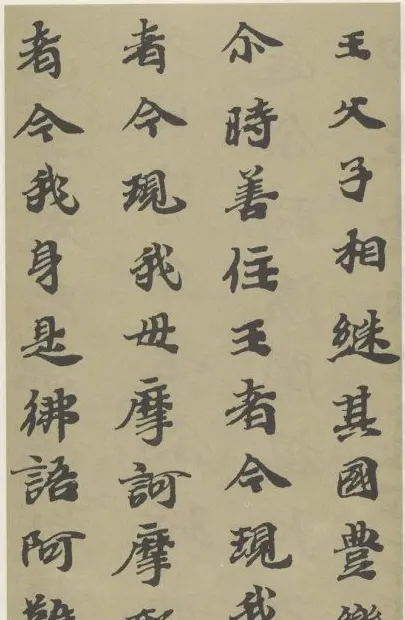 王父子相継其國豊
尒時善住王者今現我
者今現我母摩訶摩
者今我身是彿語阿